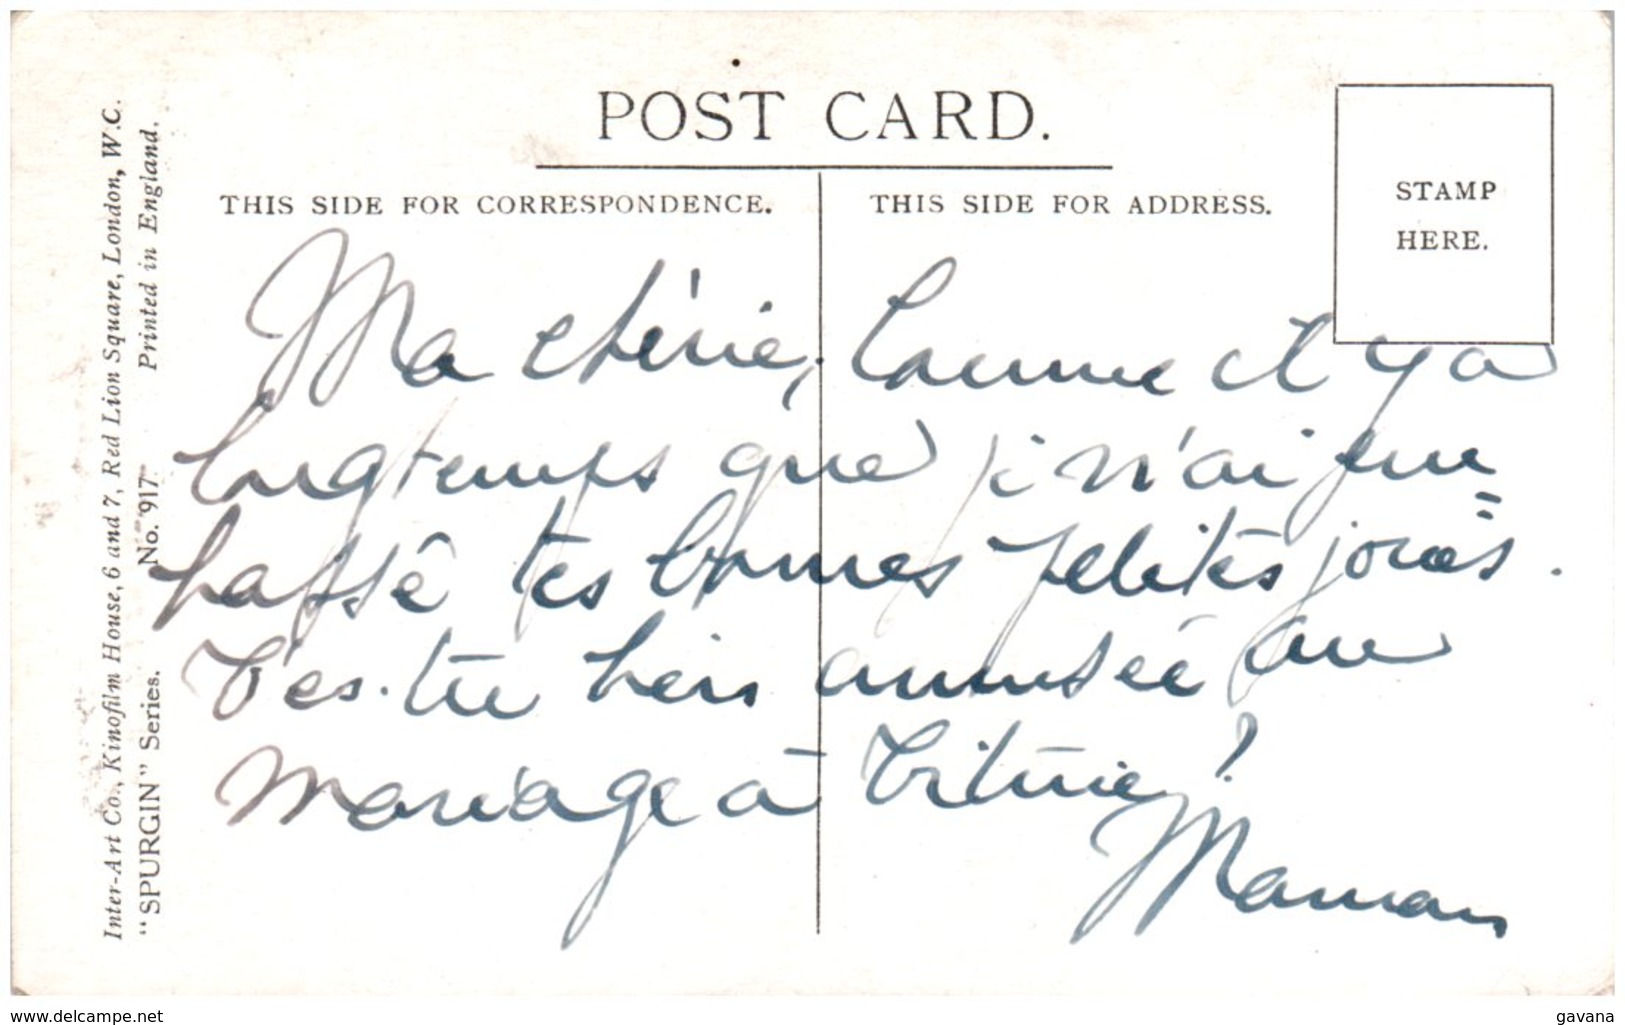 POST CARD.
THIS SIDE FOR CORRESPONDENCE.
THIS SIDE FOR ADDRESS.
STAMP
HERE.
Inter-Art Co., Kinofilm House, 6 and 7, Red Lion Square, London, W.C.
"SPURGIN" Series. No. 917. Printed in England.
Ma chérie, comme il y a
longtemps que je n'ai
passé tes bonnes petites joues.
T'es-tu bien amusée au
mariage à ?
Maman
www.delcampe.net
gavana